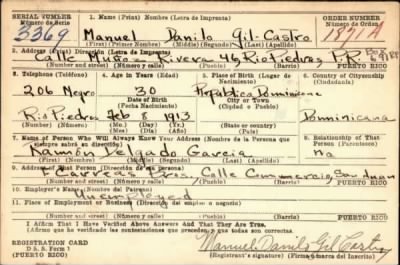 SERIAL NUMBER
Número de Serie
3369
1. Name (Print) Nombre (Letra de Imprenta)
Manuel Danilo Gil-Castro
(First) (Primer Nombre) (Middle) (Segundo) (Last) (Apellido)
ORDER NUMBER
Número de Orden
1871A
2. Address (Print) Dirección (Letra de Imprenta)
Calle Muñoz Rivera 46, Rio Piedras, P.R. Box
(Number and street) (Número y calle) (Barrio) PUERTO RICO
3. Telephone (Teléfono)
206 Negro
Rio Piedras
4. Age in Years (Edad)
30
Date of Birth
(Fecha Nacimiento)
Feb 8 1913
(Mo.) (Mes) (Day) (Día) (Yr.) (Año)
5. Place of Birth (Lugar de Nacimiento)
República Dominicana
City or Town
(Ciudad o Pueblo)
6. Country of Citizenship
(Ciudadanía)
Dominicana
7. Name of Person Who Will Always Know Your Address (Nombre de la Persona que siempre sabrá su dirección)
Ramón Delgado Garcia
(First) (Nombre) (Middle) (Segundo) (Last) (Apellido)
8. Relationship of That Person
(Parentesco)
No
9. Address of That Person (Dirección de esa persona)
Calle Commercio, San Juan
(Number and street) (Número y calle) (Barrio) PUERTO RICO
10. Employer's Name (Nombre del Patrono)
Unemployed
11. Place of Employment or Business (Dirección del empleo o negocio)
(Number and street) (Número y calle) (Barrio) PUERTO RICO
I Affirm That I Have Verified Above Answers and That They Are True.
(Afirmo que he verificado las contestaciones que preceden y que todas son correctas.)
REGISTRATION CARD
D. S. S. Form 1
Manuel Danilo Gil Castro
(Registrant's signature) (Firma y rúbrica del inscrito)